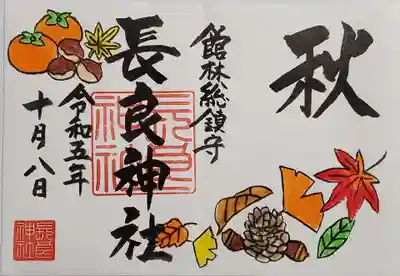 秋
館林総鎮守
長良神社
令和五年
十月八日
長良神社
長良神社